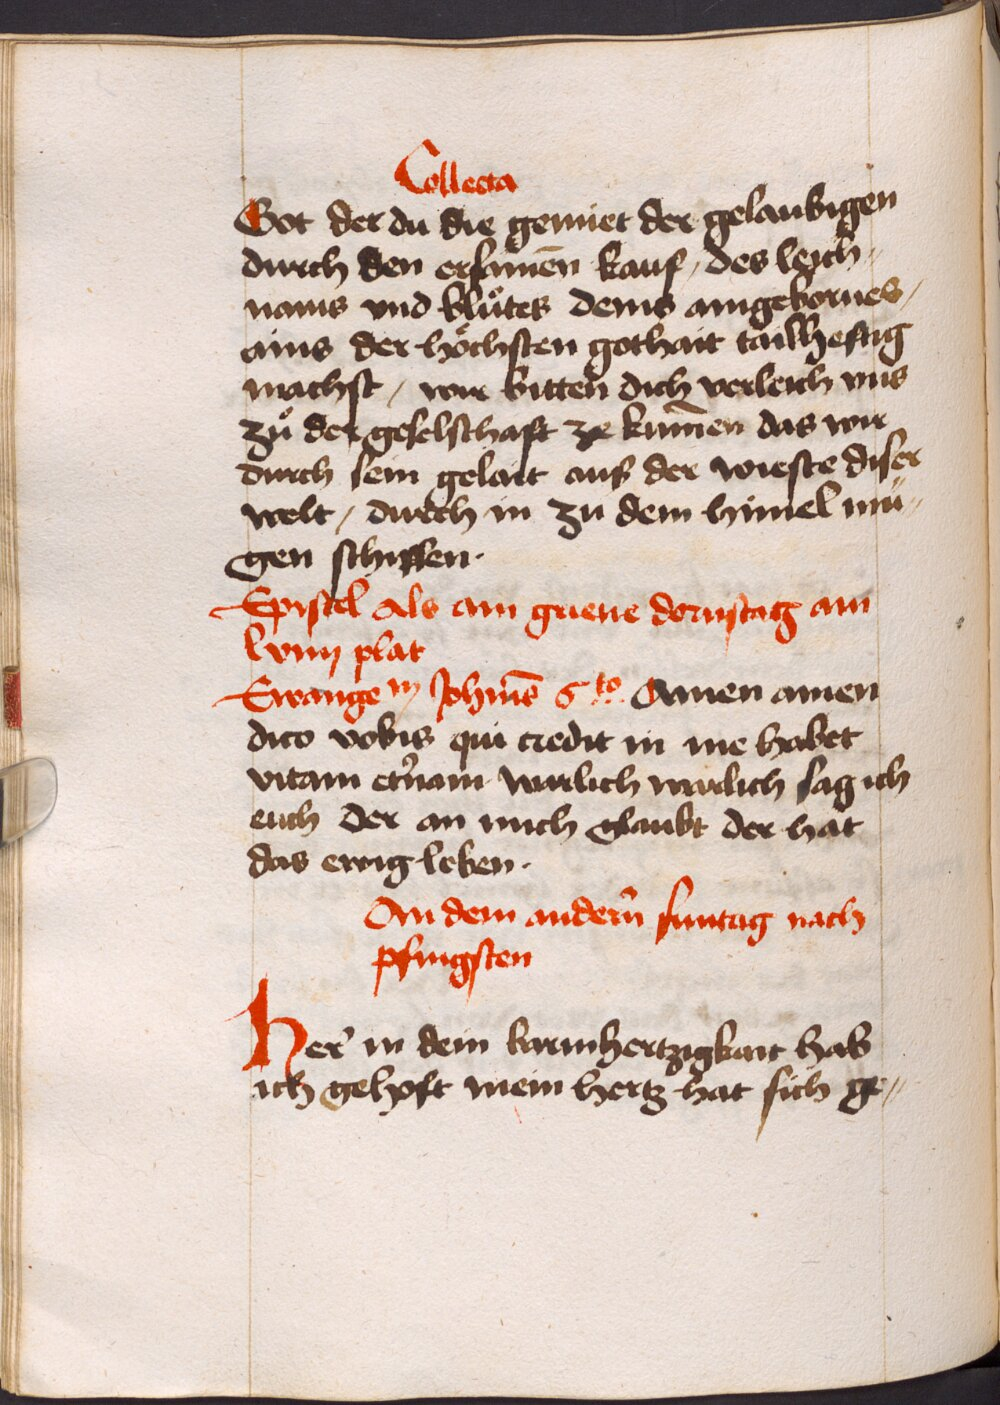 Collecta
Got der du die gemiet der gelaubigen
durch den ersamēn kauf / des leich〃
nams vnd blůtes deins aingebornes /
ains der höchsten gothait tailhefftig
machst / wir bitten dich verleich vns
zů der geselschaft ze kumēn das wir
durch sein gelait aus der wieste diser
welt / durch in zu dem himel mü〃
gen schiffen ·
Epistel als am griene dornstag am
lviiij plat
Ewange m Johnīs 6to Amen amen
dico vobis qui credit in me habet
vitam eternam warlich warlich sag ich
euch der an mich glaubt der hat
das ewig leben ·
An dem andern suntag nach
pfingsten
Her in dein barmhertzigkait hab
ich gehoft mein hertz hat sich ge〃